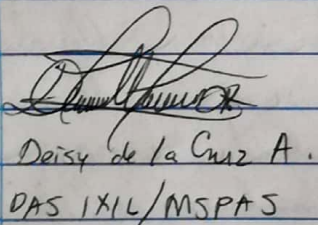 Deisy de la Cruz A.
DAS IXIL/MSPAS